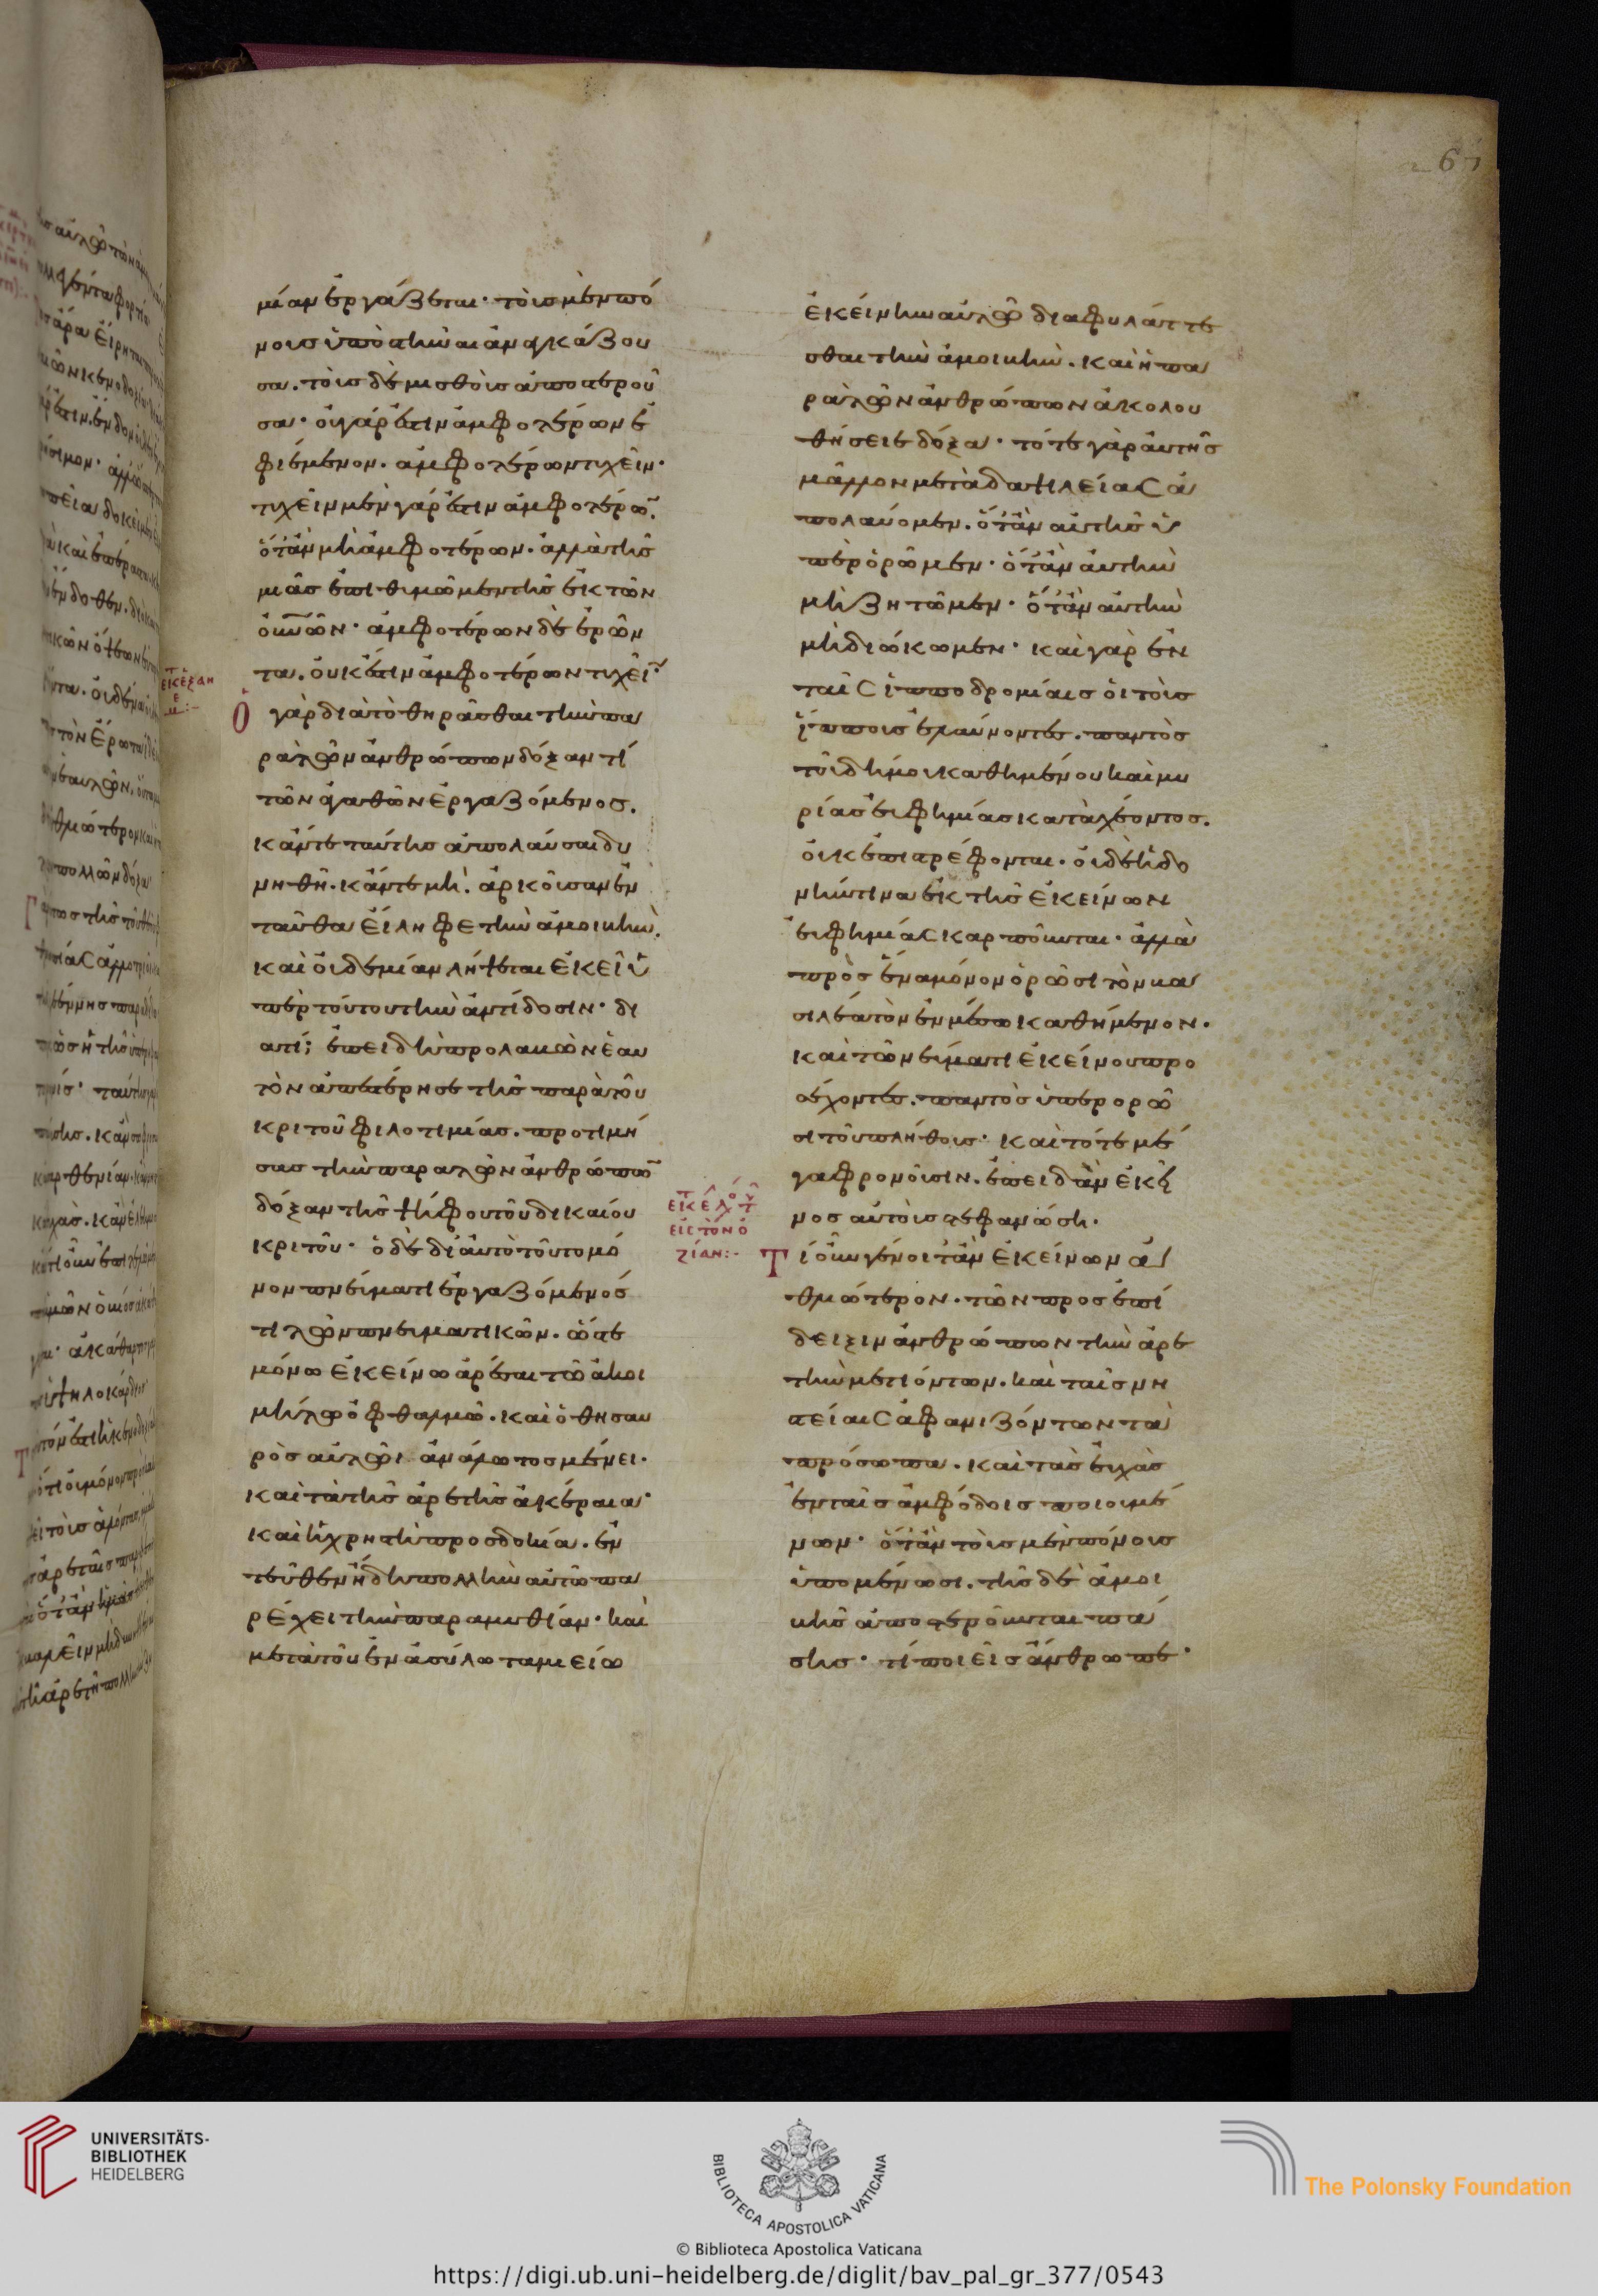 μίαν ἐργάζεται· τοῖς μὲν πό
νοις ὑπὸ στῆναι ἀναγκάζου
σα. τοῖς δὲ μισθοῖς ἀποστεροῦ
σα· οὐ γάρ ἐστιν ἀμφοτέρων ἐ
φιέμενον. ἀμφοτέρων τυχεῖν·
τυχεῖν μὲν γάρ ἐστιν ἀμφοτέρω̅.
ὅτ' ἂν μὴ ἀμφοτέρων. ἀλλὰ τῆς
μιᾶς ἐπιθυμῶμεν τῆς ἐκ τῶν
οὐν̅ω̅ν· ἀμφοτέρων δὲ ἐρῶν
τα. οὐκ ἔστιν ἀμφοτέρων τυχεῖ̅·
Ὁ γὰρ διὰ τὸ θηρᾶσθαι τὴν πα
ρὰ τῶν ἀνθρώπων δόξαν τὶ
τῶν ἀγαθῶν ἐργαζόμενος.
κἄν τε ταύτης ἀπολαῦσαι δυ
νηθῆ. κἄν τε μὴ. ἀρκοῦσαν ἐν
ταῦθα εἴληφε τὴν ἀμοιβὴν.
καὶ οὐδεμίαν λήψεται ἐκεῖ ὑ
πὲρ τούτου τὴν ἀντίδοσιν· δι
ατί; ἐπειδὴ προλαβὼν ἑαυ
τὸν ἀπεστέρησε τῆς παρὰ τοῦ
κριτοῦ φιλοτιμίας. προτιμή
σας τὴν παρα τῶν ἀνθρώπω̅
δόξαν τῆς ψήφου τοῦ δικαίου
κριτοῦ· ὁ δὲ δι' αὐτὸ τοῦτο μό
νον πνεύματι ἐργαζόμενός
τι τῶν πνευματικῶν. ὥστε
μόνω ἐκείνω ἀρέσαι τῶ ἀκοι
μήτω ὀφθαλμῶ. καὶ ὁ θησαυ
ρὸς αὐτῶι ἀνάλωτος μένει.
καὶ τὰ τῆς ἀρετῆς ἀκέραια·
καὶ ἡ χρηστὴ προσδοκία. ἐν
τεῦθεν ἤδη πολλὴν αὐτῶ πα
ρέχει τὴν παραμυθίαν· καὶ
μετὰ τοῦ ἐν ἀσύλω ταμιείω
ἐκείνην αὐτῶ διαφυλάττε
σθαι τὴν ἀμοιβὴν. καὶ ἡ πα
ρὰ τῶν ἀνθρώπων ἀκολου
θήσει δόξα· τότε γὰρ αὐτῆς
μᾶλλον μετὰ δαψιλείας ἀ
πολαύομεν. ὅτ' ἂν αὐτῆς ὑ
περορῶμεν· ὅτ' ἂν αὐτὴν
μὴ ζητῶμεν· ὅτ' ἂν αὐτὴν
μὴ διώκωμεν· καὶ γὰρ ἐν
ταῖς ἱπποδρομίαις οἱ τοῖς
ἵπποις ἐλαύνοντες. παντὸς
τοῦ δήμου καθημένου καὶ μυ
ρίας εὐφημίας καταχέοντος.
οὐκ ἐπιστρέφονται. οὐδὲ ἡδο
νήν τινα ἐκ τῆς ἐκείνων
εὐφημίας καρποῦνται· ἀλλὰ
πρὸς ἕνα μόνον ὁρῶσι τὸν βα
σιλέα τὸν ἐν μέσω καθήμενον.
καὶ τῶ νεύματι ἐκείνου προ
σέχοντες. παντὸς ὑπερορῶ
σι τοῦ πλήθους· καὶ τότε μέ
γα φρονοῦσιν. ἐπειδὰν ἐκεῖ
νος αὐτοὺς στεφανώση.
Τί οὖν γένοιτ' ἂν ἐκείνων ἀ
θλιώτερον. τῶν προς ἐπί
δειξιν ἀνθρώπων τὴν ἀρε
τὴν μετιόντων. καὶ ταῖς νη
στείαις ἀφανιζόντων τὰ
πρόσωπα. καὶ τὰς εὐχὰς
ἐν ταῖς ἀμφόδοις ποιουμέ
νων· ὅτ' ἂν τοὺς μὲν πόνους
ὑπομένωσι. τῆς δὲ ἀμοι
βῆς ἀποστεροῦνται πά
σης· τί ποιεῖς ἄνθρωπε·
UNIVERSITÄTS-
BIBLIOTHEK
HEIDELBERG
BIBLIOTECA APOSTOLICA VATICANA
The Polonsky Foundation
© Biblioteca Apostolica Vaticana
https://digi.ub.uni-heidelberg.de/diglit/bav_pal_gr_377/0543